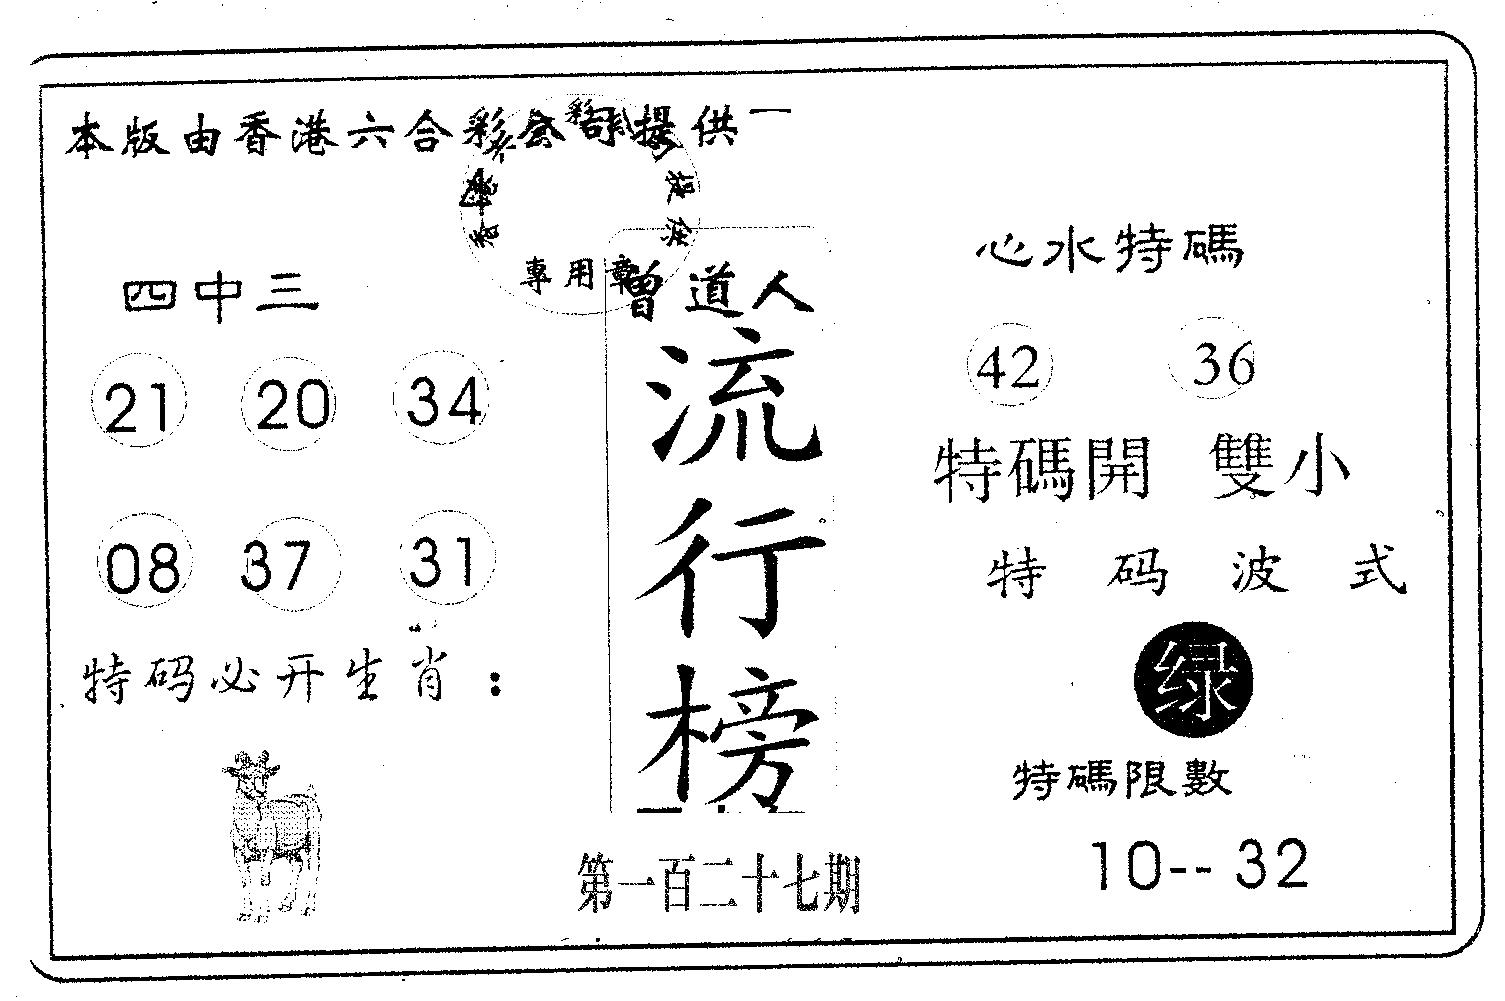 本版由香港六合彩公司提供
提供
專用章
四中三
21 20 34
08 37 31
特码必开生肖：
曾道人
流行榜
第一百二十七期
心水特碼
42 36
特碼開 雙小
特码波式
绿
特碼限數
10-- 32